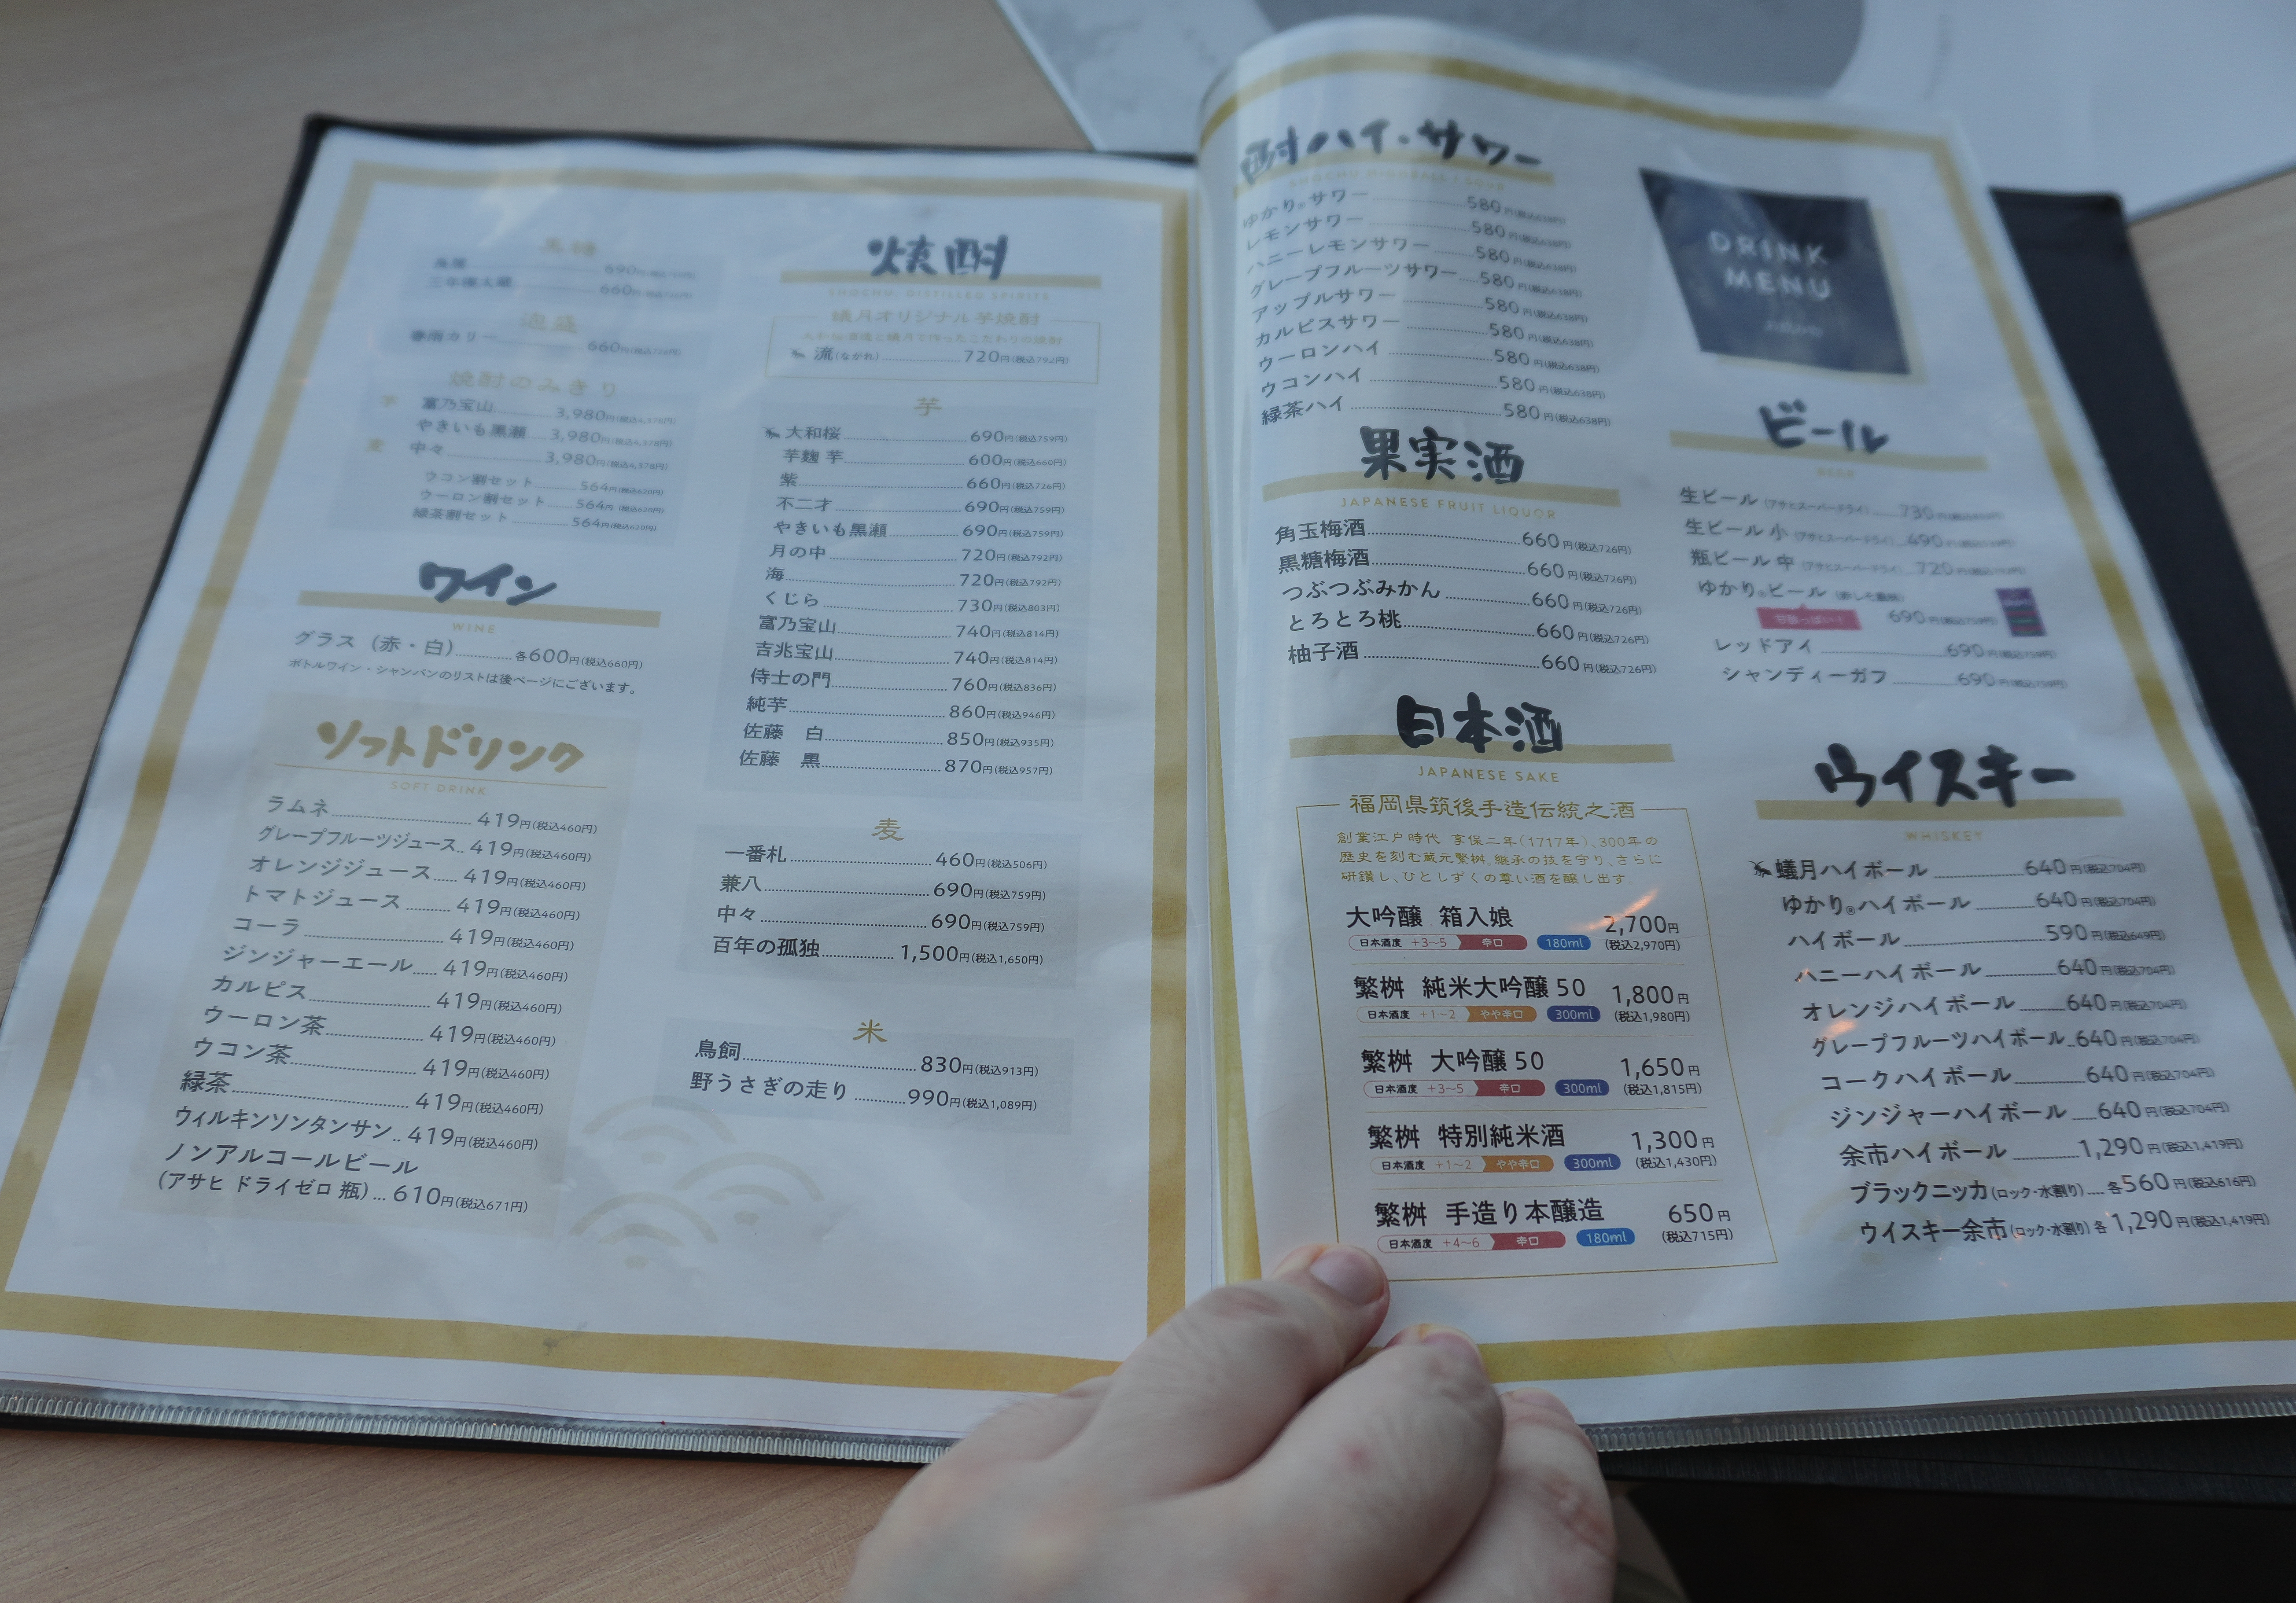 660円
泡盛
春雨カリー 660円(税込726円)
焼酎のみきり
芋 富乃宝山 3,980円(税込4,378円)
やきいも黒瀬 3,980円(税込4,378円)
麦 中々 3,980円(税込4,378円)
ウコン割セット 564円(税込620円)
ウーロン割セット 564円(税込620円)
緑茶割セット 564円(税込620円)
ワイン
WINE
グラス（赤・白） 各600円(税込660円)
ボトルワイン・シャンパンのリストは後ページにございます。
ソフトドリンク
SOFT DRINK
ラムネ 419円(税込460円)
グレープフルーツジュース 419円(税込460円)
オレンジジュース 419円(税込460円)
トマトジュース 419円(税込460円)
コーラ 419円(税込460円)
ジンジャーエール 419円(税込460円)
カルピス 419円(税込460円)
ウーロン茶 419円(税込460円)
ウコン茶 419円(税込460円)
緑茶 419円(税込460円)
ウィルキンソンタンサン 419円(税込460円)
ノンアルコールビール
(アサヒ ドライゼロ 瓶) 610円(税込671円)
焼酎
SHOCHU, DISTILLED SPIRITS
蟻月オリジナル芋焼酎
流(ながれ) 720円(税込792円)
芋
大和桜 690円(税込759円)
芋麹 芋 600円(税込660円)
紫 660円(税込726円)
不二才 690円(税込759円)
やきいも黒瀬 690円(税込759円)
月の中 720円(税込792円)
海 720円(税込792円)
くじら 730円(税込803円)
富乃宝山 740円(税込814円)
吉兆宝山 740円(税込814円)
侍士の門 760円(税込836円)
純芋 860円(税込946円)
佐藤 白 850円(税込935円)
佐藤 黒 870円(税込957円)
麦
一番札 460円(税込506円)
兼八 690円(税込759円)
中々 690円(税込759円)
百年の孤独 1,500円(税込1,650円)
米
鳥飼 830円(税込913円)
野うさぎの走り 990円(税込1,089円)
酎ハイ・サワー
SHOCHU HIGHBALL / SOUR
ゆかり®サワー 580円(税込638円)
レモンサワー 580円(税込638円)
ハニーレモンサワー 580円(税込638円)
グレープフルーツサワー 580円(税込638円)
アップルサワー 580円(税込638円)
カルピスサワー 580円(税込638円)
ウーロンハイ 580円(税込638円)
ウコンハイ 580円(税込638円)
緑茶ハイ 580円(税込638円)
果実酒
JAPANESE FRUIT LIQUOR
角玉梅酒 660円(税込726円)
黒糖梅酒 660円(税込726円)
つぶつぶみかん 660円(税込726円)
とろとろ桃 660円(税込726円)
柚子酒 660円(税込726円)
日本酒
JAPANESE SAKE
福岡県筑後手造伝統之酒
創業江戸時代 享保二年(1717年)、300年の
歴史を刻む蔵元繁桝。継承の技を守り、さらに
研鑽し、ひとしずくの尊い酒を醸し出す。
大吟醸 箱入娘 2,700円
日本酒度 +3~5 辛口 180ml (税込2,970円)
繁桝 純米大吟醸 50 1,800円
日本酒度 +1~2 やや辛口 300ml (税込1,980円)
繁桝 大吟醸 50 1,650円
日本酒度 +3~5 辛口 300ml (税込1,815円)
繁桝 特別純米酒 1,300円
日本酒度 +1~2 やや辛口 300ml (税込1,430円)
繁桝 手造り本醸造 650円
日本酒度 +4~6 辛口 180ml (税込715円)
DRINK
MENU
ビール
BEER
生ビール (アサヒスーパードライ) 730円
生ビール 小 (アサヒスーパードライ) 490円
瓶ビール 中 (アサヒスーパードライ) 720円
ゆかり®ビール
甘酸っぱい！ 690円(税込759円)
レッドアイ 690円(税込759円)
シャンディーガフ 690円(税込759円)
ウイスキー
WHISKEY
蟻月ハイボール 640円(税込704円)
ゆかり®ハイボール 640円(税込704円)
ハイボール 590円(税込649円)
ハニーハイボール 640円(税込704円)
オレンジハイボール 640円(税込704円)
グレープフルーツハイボール 640円(税込704円)
コークハイボール 640円(税込704円)
ジンジャーハイボール 640円(税込704円)
余市ハイボール 1,290円(税込1,419円)
ブラックニッカ(ロック・水割り) 各560円(税込616円)
ウイスキー余市(ロック・水割り) 各1,290円(税込1,419円)